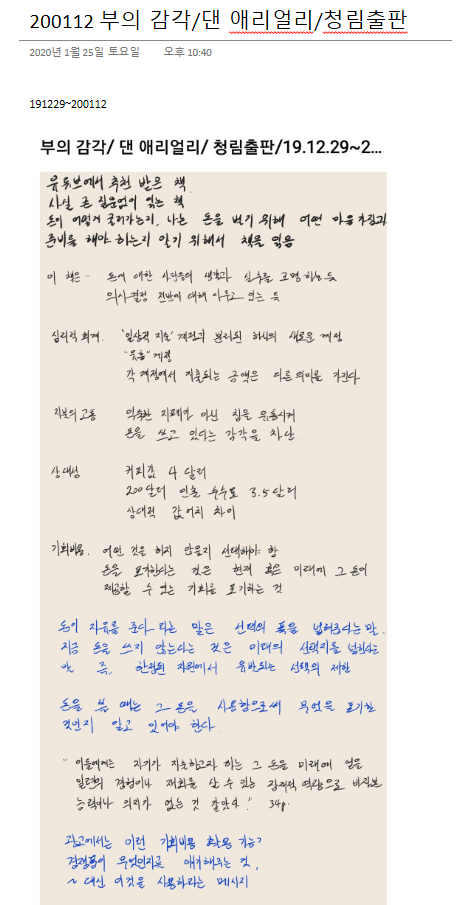 200112 부의 감각/댄 애리얼리/청림출판
2020년 1월 25일 토요일 오후 10:40
191229~200112
부의 감각/ 댄 애리얼리/ 청림출판/19.12.29~2...
유튜브에서 추천 받은 책
사실 큰 질문없이 읽는 책
돈이 어떻게 굴러가는지, 나는 돈을 벌기 위해 어떤 마음가짐과
준비를 해야 하는지 알기 위해서 책을 읽음
이 책은.. 돈에 대한 사람들의 생각과 실수를 조명하는 듯
의사결정 전반에 대해 아우르고 있는 듯
심리적 회계. '일상적 지출' 계정과 분리된 하나의 새로운 계정
"유흥"계정
각 계정에서 지출되는 금액은 다른 의미를 가진다
지불의 고통 익숙한 지폐가 아닌 칩을 유통시켜
돈을 쓰고 있다는 감각을 차단.
상대성 커피값 4달러
200달러 인출 수수료 3.5달러
상대적 값어치 차이
기회비용. 어떤 것을 하지 않을지 선택해야 함
돈을 포기한다는 것은 현재 혹은 미래에 그 돈이
제공할 수 있는 기회를 포기하는 것
돈이 자유를 준다 라는 말은 선택의 폭을 넓혀준다는 말.
지금 돈을 쓰지 않는다는 것은 미래의 선택지를 넓힌다는
말. 즉, 한정된 자원에서 유발되는 선택의 제한
돈을 쓸 때는 그 돈을 사용함으로써 무엇을 포기한
것인지 알고 있어야 한다.
"이들에게는 자기가 지출하고자 하는 그 돈을 미래에 얻을
일련의 경험이나 재화를 살 수 있는 잠재적 역량으로 바라보는
능력이나 의지가 없는 것 같았다." 34p.
광고에서는 이런 기회비용 활용 가능?
경쟁품이 무엇인지를 얘기해주는 것,
~ 대신 이것을 사용하라는 메시지